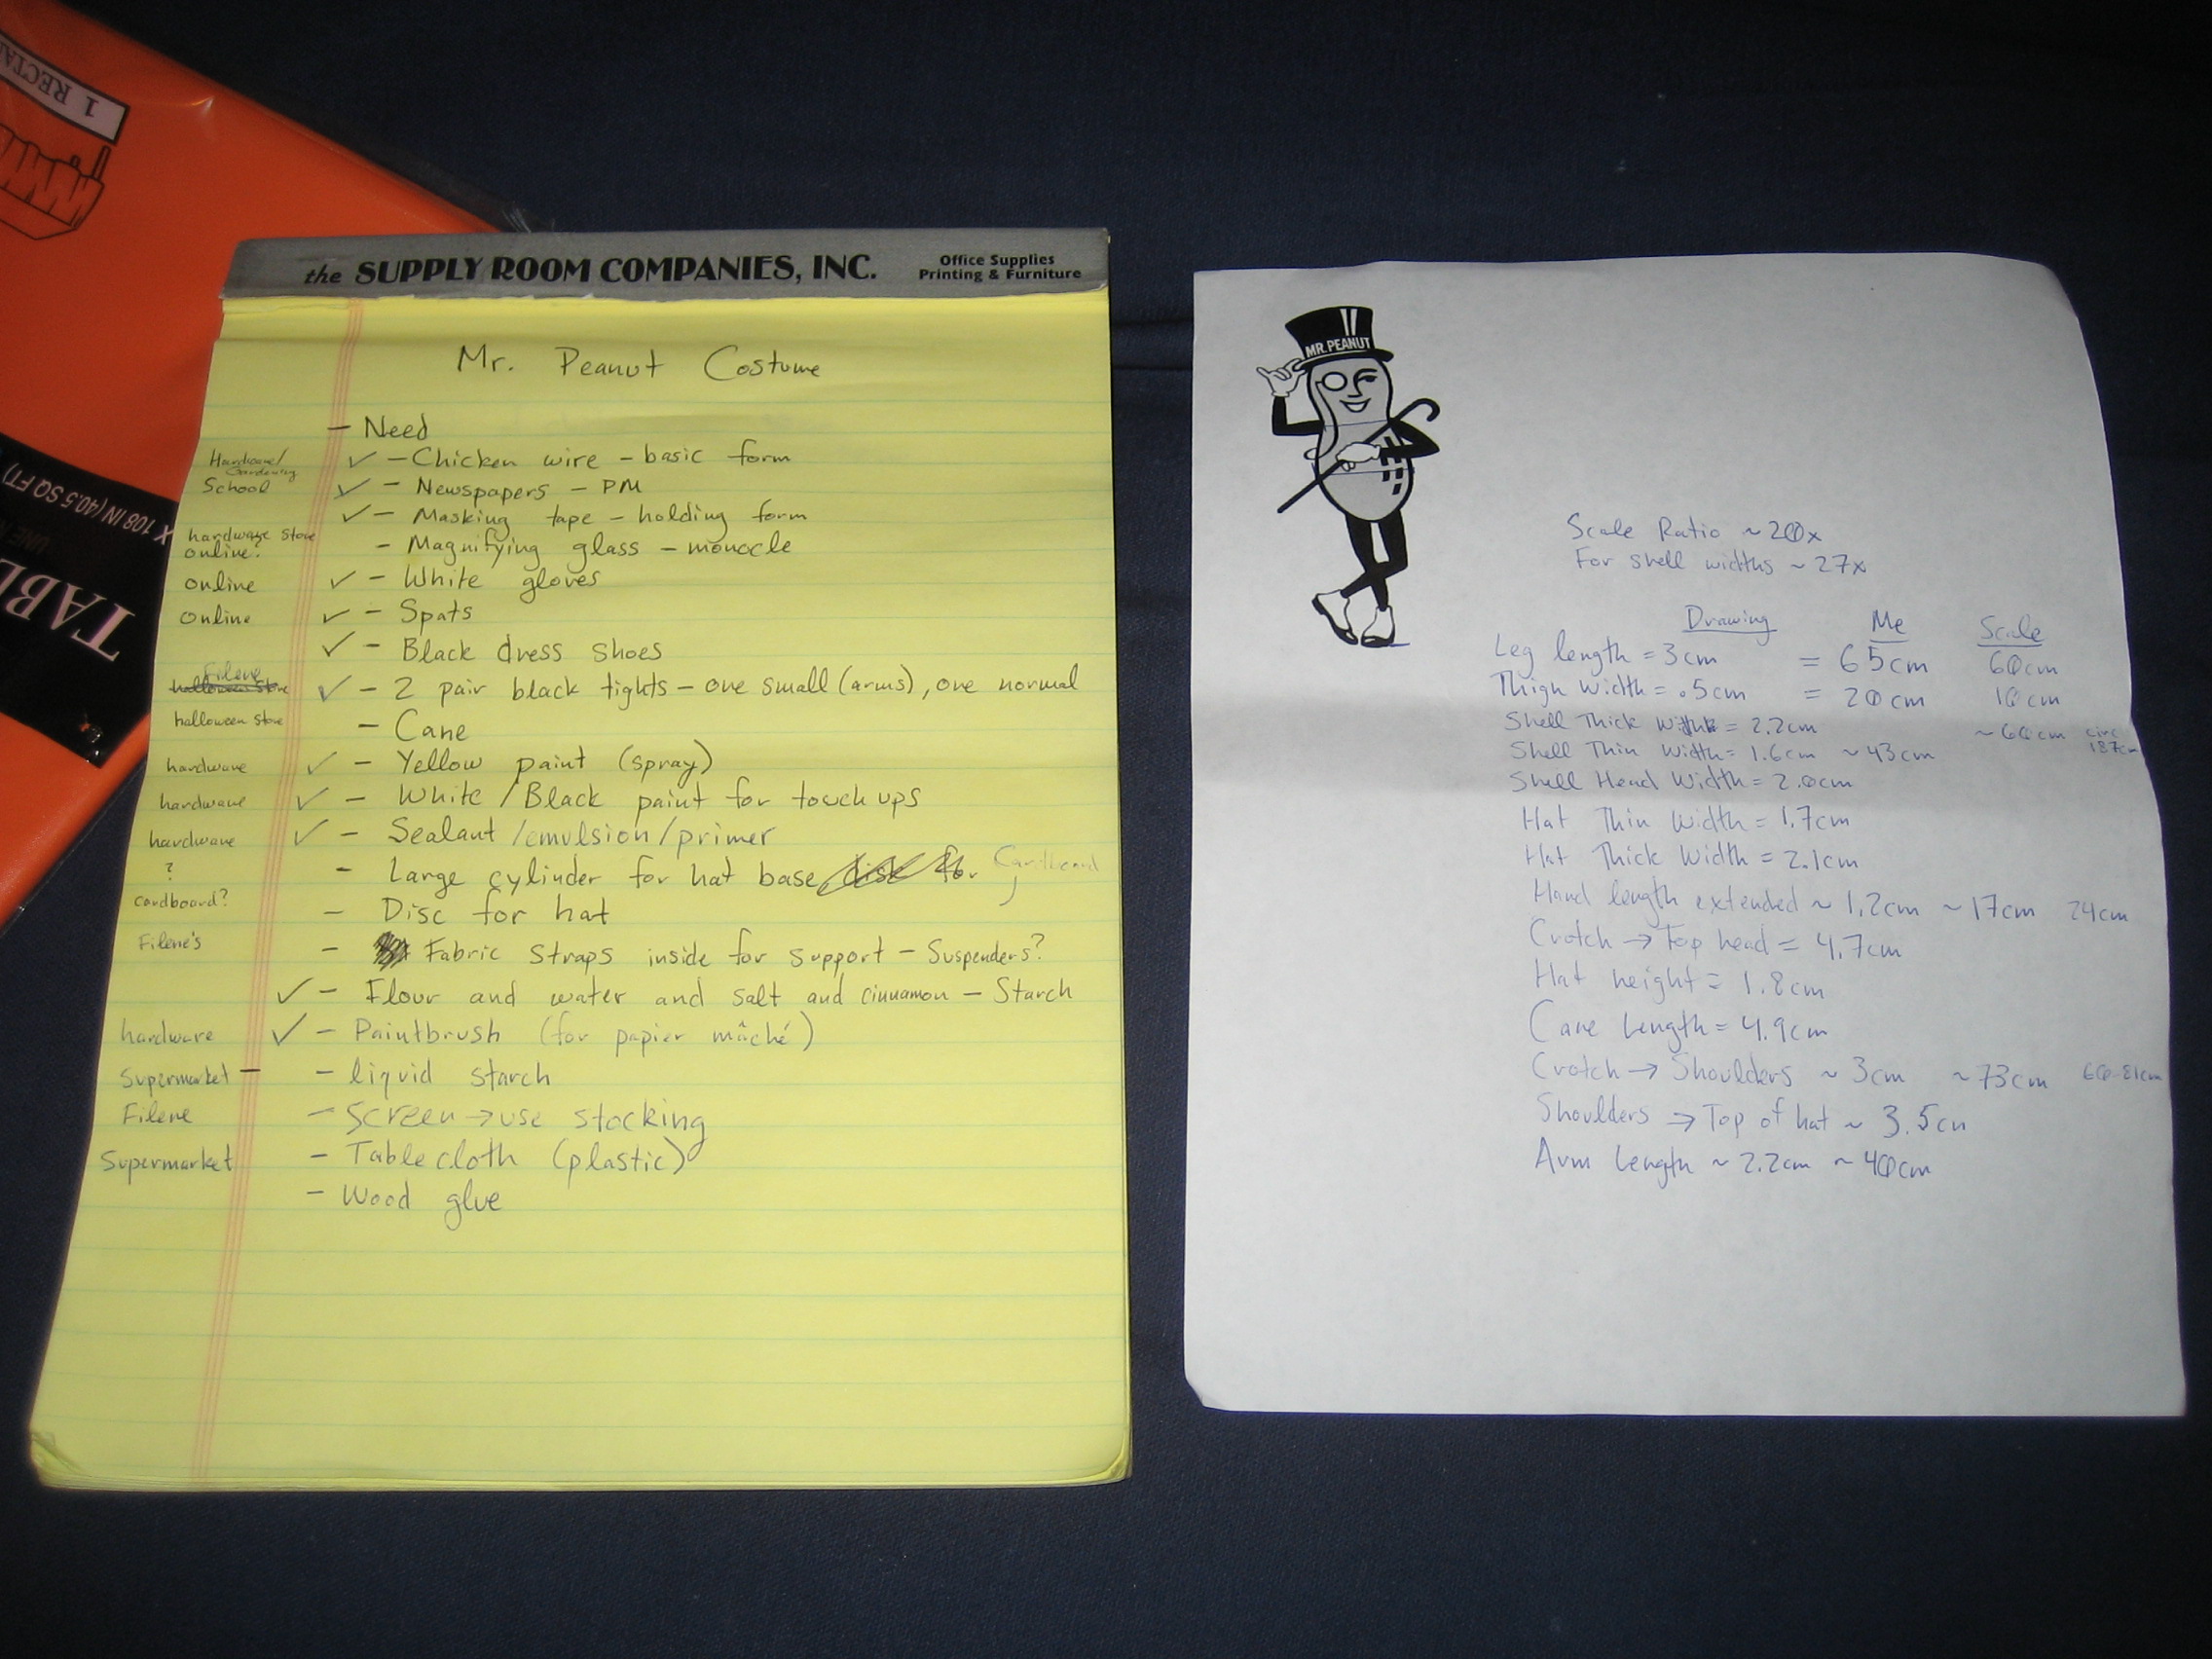 1 RECTA
X 108 IN (40.5 SQ FT)
TABL
the SUPPLY ROOM COMPANIES, INC.
Office Supplies
Printing & Furniture
Mr. Peanut Costume
- Need
Hardware/Gardening ✓ - Chicken wire - basic form
School ✓ - Newspapers - PM
✓ - Masking tape - holding form
hardware store
online? - Magnifying glass - monocle
online ✓ - White gloves
online ✓ - Spats
✓ - Black dress shoes
Filene
halloween store ✓ - 2 pair black tights - one small (arms), one normal
halloween store - Cane
hardware ✓ - Yellow paint (spray)
hardware ✓ - White / Black paint for touch ups
hardware ✓ - Sealant /emulsion/primer
? - Large cylinder for hat base, disk for Cardboard
cardboard? - Disc for hat
Filene's - Fabric straps inside for support - Suspenders?
✓ - Flour and water and salt and cinnamon - Starch
hardware ✓ - Paintbrush (for papier mâché)
Supermarket - - liquid starch
Filene - Screen → use stocking
Supermarket - Table cloth (plastic)
- Wood glue
MR. PEANUT
Scale Ratio ~ 20x
For shell widths ~ 27x
Drawing Me Scale
Leg length = 3cm = 65cm 60cm
Thigh Width = .5cm = 20cm 10cm
Shell Thick Width = 2.2cm ~60cm circ 187cm
Shell Thin Width = 1.6cm ~43cm
Shell Head Width = 2.0cm
Hat Thin Width = 1.7cm
Hat Thick Width = 2.1cm
Hand length extended ~ 1.2cm ~17cm 24cm
Crotch → Top head = 4.7cm
Hat height = 1.8cm
Cane Length = 4.9cm
Crotch → Shoulders ~ 3cm ~73cm 60-81cm
Shoulders → Top of hat ~ 3.5cm
Arm Length ~ 2.2cm ~ 40cm